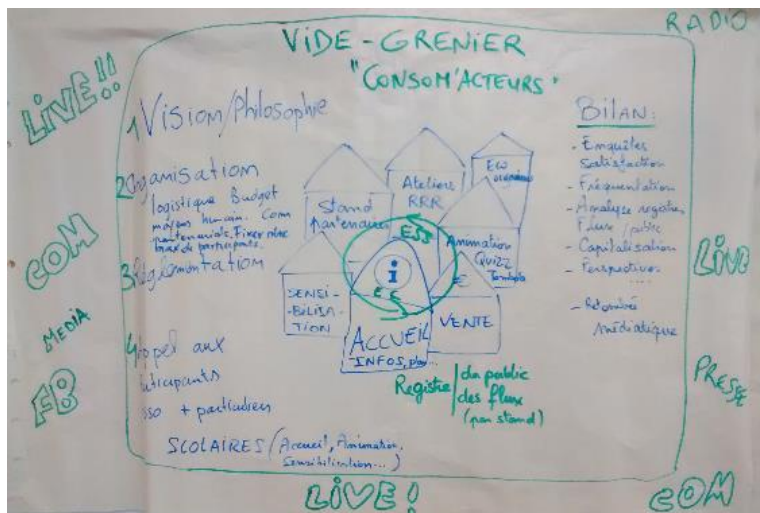 RADIO
VIDE-GRENIER
"CONSOM'ACTEURS"
LIVE!!
COM
MEDIA
FB
1 Vision/Philosophie
2 Organisation
logistique Budget
moyens humain. Com
partenariats. Fixer nbre
max de participants.
3 Réglementation
4 Appel aux
participants
asso + particuliers
SCOLAIRES (Accueil, Animation,
Sensibilisation...)
Stand
partenaires
Ateliers
RRR
Eco
ESS
Animation
Quizz
Tombola
i
EC
SENSI-
BILISA-
TION
€
VENTE
ACCUEIL
INFOS, plan...
Registre / du public
des flux
(par stand)
BILAN:
- Enquêtes
satisfaction
- Fréquentation
- Analyse registres
Flux / public
- Capitalisation
- Perspectives
....
- Retombée
médiatique
LIVE
PRESSE
COM
LIVE!